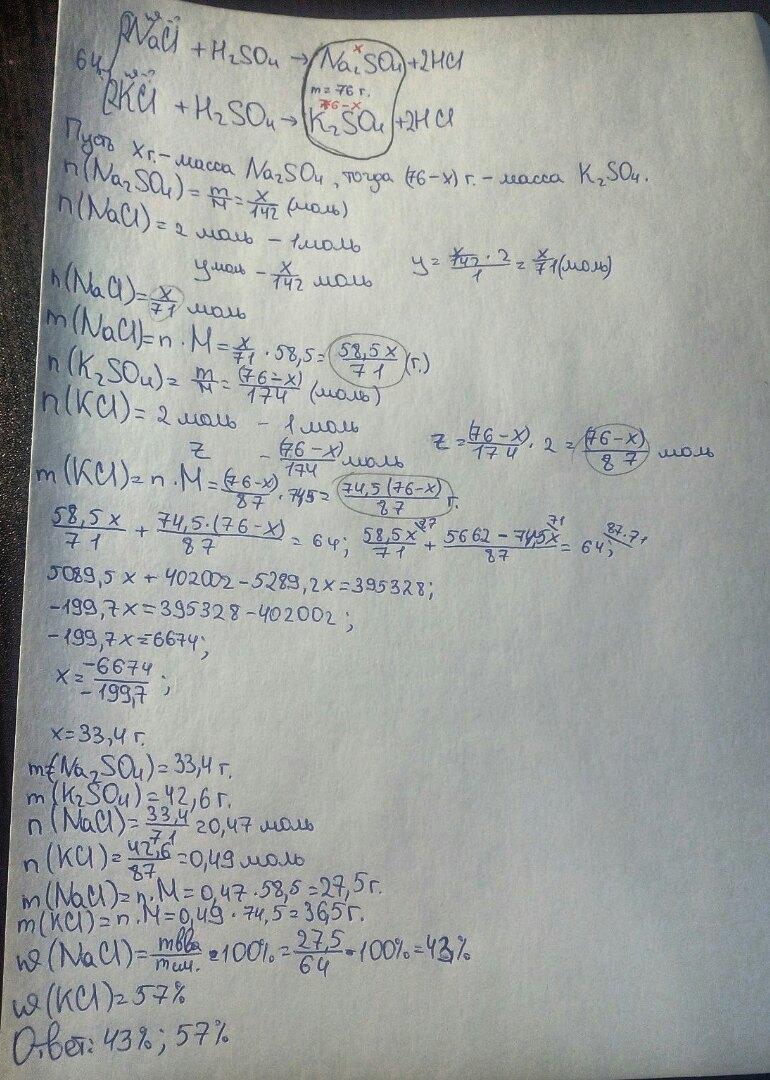 2NaCl + H₂SO₄ → Na₂SO₄ + 2HCl
64г
m = 76 г.
2KCl + H₂SO₄ → K₂SO₄ + 2HCl
x
76-x
Пусть x г. – масса Na₂SO₄, тогда (76-x) г. – масса K₂SO₄.
n(Na₂SO₄) = m/M = x/142 (моль)
n(NaCl) = 2 моль – 1 моль
y моль – x/142 моль y = x/142 · 2 / 1 = x/71 (моль)
n(NaCl) = x/71 моль
m(NaCl) = n · M = x/71 · 58,5 = 58,5x/71 (г.)
n(K₂SO₄) = m/M = (76-x)/174 (моль)
n(KCl) = 2 моль – 1 моль
z – (76-x)/174 моль z = (76-x)/174 · 2 = (76-x)/87 моль
m(KCl) = n · M = (76-x)/87 · 74,5 = 74,5(76-x)/87 г.
58,5x/71 + 74,5·(76-x)/87 = 64; 58,5x/71 + 5662 - 74,5x/87 = 64;
87 71 87·71
5089,5x + 402002 - 5289,2x = 395328;
-199,7x = 395328 - 402002;
-199,7x = 6674;
x = -6674/-199,7;
x = 33,4 г.
m(Na₂SO₄) = 33,4 г.
m(K₂SO₄) = 42,6 г.
n(NaCl) = 33,4/71 = 0,47 моль
n(KCl) = 42,6/87 = 0,49 моль
m(NaCl) = n · M = 0,47 · 58,5 = 27,5 г.
m(KCl) = n · M = 0,49 · 74,5 = 36,5 г.
w(NaCl) = mв-ва/mсм. · 100% = 27,5/64 · 100% = 43%
w(KCl) = 57%
Ответ: 43%; 57%